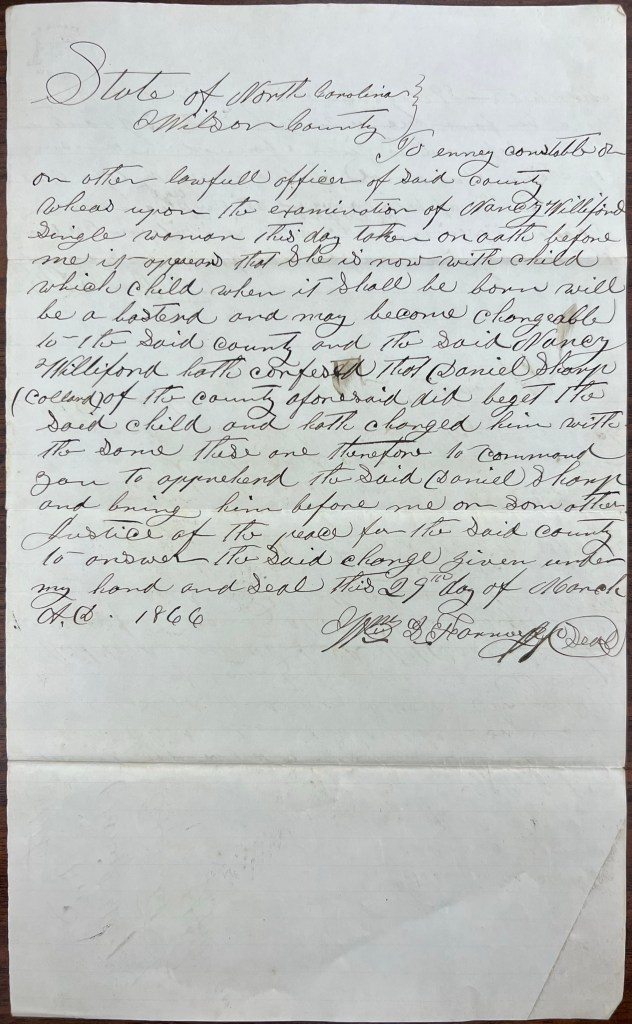 State of North Carolina
Wilson County
To enney constable or
on other lawfull officer of Said County
wheas upon the examination of Nancy Williford
Single woman this day taken on oath before
me it apears that She is now with child
which child when it Shall be born will
be a bastend and may become chargeable
to the Said county and the Said Nancy
Williford hath confessed that Daniel Sharp
(Collard) of the county aforesaid did beget the
Said child and hath charged him with
the Same these are therefore to command
you to apprehend the Said Daniel Sharp
and bring him before me or Som other
Justice of the peace for the Said county
to answer the Said charge given under
my hand and Seal this 29th day of March
A.D. 1866
Wm (Seal)